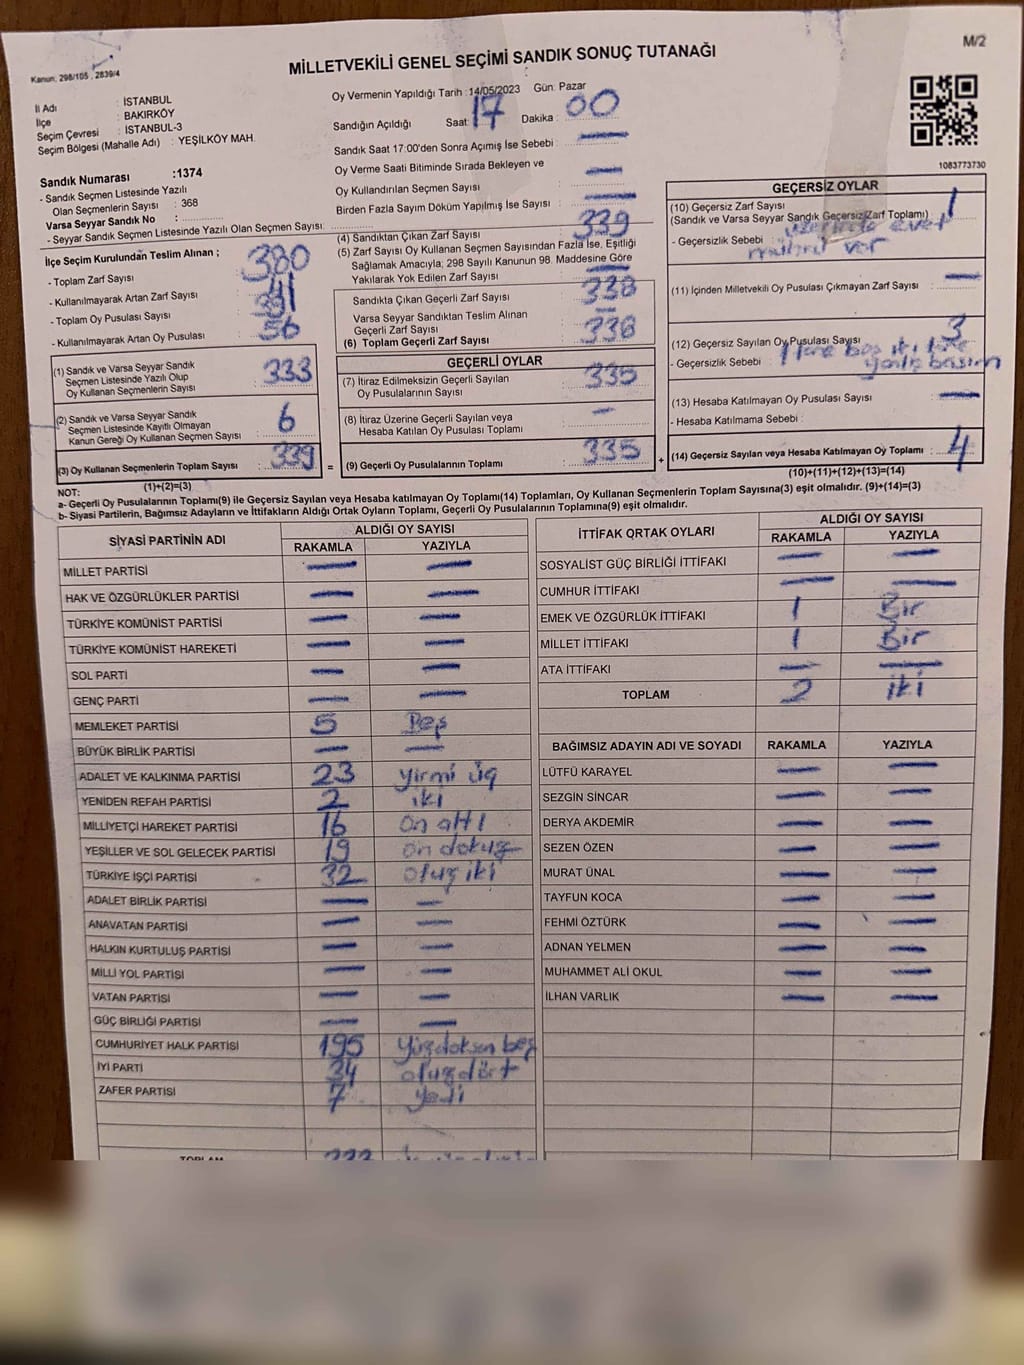 M/2
Kanun: 298/105 , 2839/4
MİLLETVEKİLİ GENEL SEÇİMİ SANDIK SONUÇ TUTANAĞI
İl Adı : İSTANBUL
İlçe : BAKIRKÖY
Seçim Çevresi : İSTANBUL-3
Seçim Bölgesi (Mahalle Adı) : YEŞİLKÖY MAH.
Sandık Numarası :1374
- Sandık Seçmen Listesinde Yazılı
Olan Seçmenlerin Sayısı : 368
Varsa Seyyar Sandık No :
- Seyyar Sandık Seçmen Listesinde Yazılı Olan Seçmen Sayısı:
Oy Vermenin Yapıldığı Tarih :14/05/2023 Gün: Pazar
Sandığın Açıldığı Saat: 17 Dakika : 00
Sandık Saat 17:00'den Sonra Açımış İse Sebebi : —
Oy Verme Saati Bitiminde Sırada Bekleyen ve
Oy Kullandırılan Seçmen Sayısı : —
Birden Fazla Sayım Döküm Yapılmış İse Sayısı : —
1083773730
İlçe Seçim Kurulundan Teslim Alınan ;
- Toplam Zarf Sayısı : 380
- Kullanılmayarak Artan Zarf Sayısı : 41
- Toplam Oy Pusulası Sayısı :
- Kullanılmayarak Artan Oy Pusulası : 56
(1) Sandık ve Varsa Seyyar Sandık
Seçmen Listesinde Yazılı Olup
Oy Kullanan Seçmenlerin Sayısı : 333
(2) Sandık ve Varsa Seyyar Sandık
Seçmen Listesinde Kayıtlı Olmayan
Kanun Gereği Oy Kullanan Seçmen Sayısı : 6
(3) Oy Kullanan Seçmenlerin Toplam Sayısı : 339
(1)+(2)=(3)
(4) Sandıktan Çıkan Zarf Sayısı : 339
(5) Zarf Sayısı Oy Kullanan Seçmen Sayısından Fazla İse, Eşitliği
Sağlamak Amacıyla; 298 Sayılı Kanunun 98. Maddesine Göre
Yakılarak Yok Edilen Zarf Sayısı : —
Sandıkta Çıkan Geçerli Zarf Sayısı : 338
Varsa Seyyar Sandıktan Teslim Alınan
Geçerli Zarf Sayısı : —
(6) Toplam Geçerli Zarf Sayısı : 338
GEÇERLİ OYLAR
(7) İtiraz Edilmeksizin Geçerli Sayılan
Oy Pusulalarının Sayısı : 335
(8) İtiraz Üzerine Geçerli Sayılan veya
Hesaba Katılan Oy Pusulası Toplamı : —
= (9) Geçerli Oy Pusulalarının Toplamı : 335 +
GEÇERSİZ OYLAR
(10) Geçersiz Zarf Sayısı : 1
(Sandık ve Varsa Seyyar Sandık Geçersiz Zarf Toplamı)
- Geçersizlik Sebebi : üzerinde evet
mührü var
(11) İçinden Milletvekili Oy Pusulası Çıkmayan Zarf Sayısı : —
(12) Geçersiz Sayılan Oy Pusulası Sayısı : 3
- Geçersizlik Sebebi : 1 tane boş iki tane
yanlış basım
(13) Hesaba Katılmayan Oy Pusulası Sayısı : —
- Hesaba Katılmama Sebebi :
(14) Geçersiz Sayılan veya Hesaba Katılmayan Oy Toplamı : 4
(10)+(11)+(12)+(13)=(14)
NOT:
a- Geçerli Oy Pusulalarının Toplamı(9) ile Geçersiz Sayılan veya Hesaba katılmayan Oy Toplamı(14) Toplamları, Oy Kullanan Seçmenlerin Toplam Sayısına(3) eşit olmalıdır. (9)+(14)=(3)
b- Siyasi Partilerin, Bağımsız Adayların ve İttifakların Aldığı Ortak Oyların Toplamı, Geçerli Oy Pusulalarının Toplamına(9) eşit olmalıdır.
SİYASİ PARTİNİN ADI ALDIĞI OY SAYISI
RAKAMLA YAZIYLA
MİLLET PARTİSİ — —
HAK VE ÖZGÜRLÜKLER PARTİSİ — —
TÜRKİYE KOMÜNİST PARTİSİ — —
TÜRKİYE KOMÜNİST HAREKETİ — —
SOL PARTİ — —
GENÇ PARTİ — —
MEMLEKET PARTİSİ 5 Beş
BÜYÜK BİRLİK PARTİSİ — —
ADALET VE KALKINMA PARTİSİ 23 yirmi üç
YENİDEN REFAH PARTİSİ 2 iki
MİLLİYETÇİ HAREKET PARTİSİ 16 on altı
YEŞİLLER VE SOL GELECEK PARTİSİ 19 on dokuz
TÜRKİYE İŞÇİ PARTİSİ 32 otuz iki
ADALET BİRLİK PARTİSİ — —
ANAVATAN PARTİSİ — —
HALKIN KURTULUŞ PARTİSİ — —
MİLLİ YOL PARTİSİ — —
VATAN PARTİSİ — —
GÜÇ BİRLİĞİ PARTİSİ — —
CUMHURİYET HALK PARTİSİ 195 Yüzdoksan beş
İYİ PARTİ 34 otuzdört
ZAFER PARTİSİ 7 yedi
TOPLAM 333
İTTİFAK ORTAK OYLARI ALDIĞI OY SAYISI
RAKAMLA YAZIYLA
SOSYALİST GÜÇ BİRLİĞİ İTTİFAKI — —
CUMHUR İTTİFAKI — —
EMEK VE ÖZGÜRLÜK İTTİFAKI 1 Bir
MİLLET İTTİFAKI 1 Bir
ATA İTTİFAKI — —
TOPLAM 2 iki
BAĞIMSIZ ADAYIN ADI VE SOYADI RAKAMLA YAZIYLA
LÜTFÜ KARAYEL — —
SEZGİN SİNCAR — —
DERYA AKDEMİR — —
SEZEN ÖZEN — —
MURAT ÜNAL — —
TAYFUN KOCA — —
FEHMİ ÖZTÜRK — —
ADNAN YELMEN — —
MUHAMMET ALİ OKUL — —
İLHAN VARLIK — —